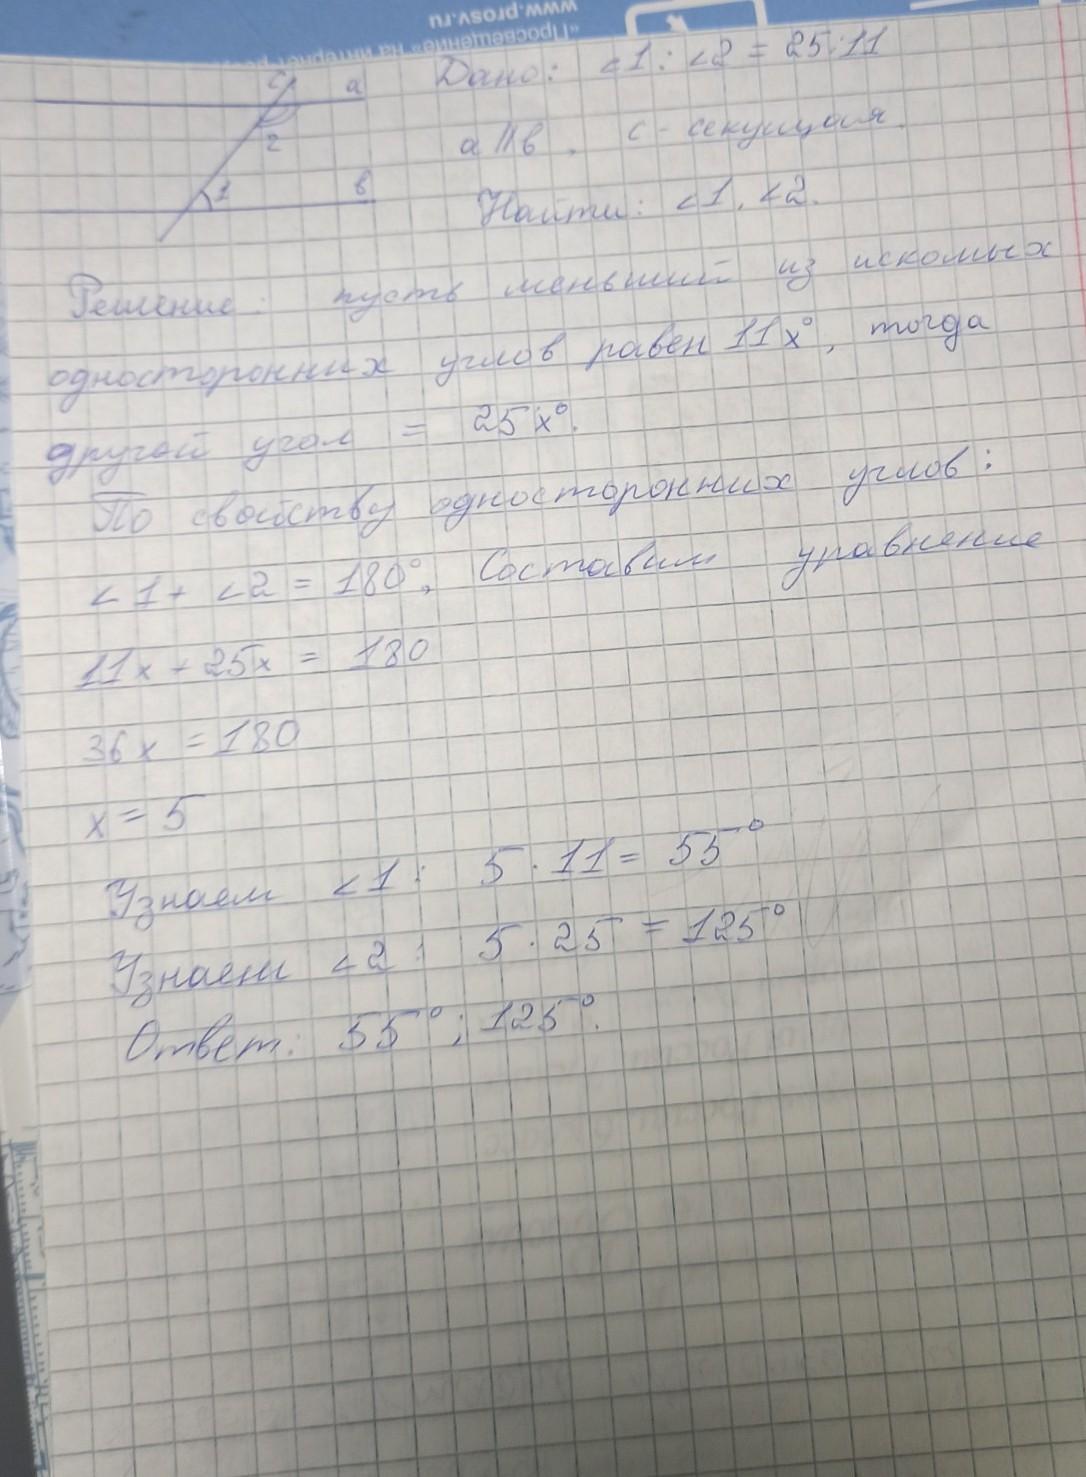 www.prosv.ru
"Просвещение» на интернет
c a
2
1 b
Дано: <1 : <2 = 25:11
a || b, c - секущая.
Найти: <1, <2.
Решение: пусть меньший из искомых
односторонних углов равен 11x°, тогда
другой угол = 25x°.
По свойству односторонних углов:
<1 + <2 = 180°, Составим уравнение
11x + 25x = 180
36x = 180
x = 5
Узнаем <1: 5 · 11 = 55°
Узнаем <2: 5 · 25 = 125°
Ответ: 55°; 125°.